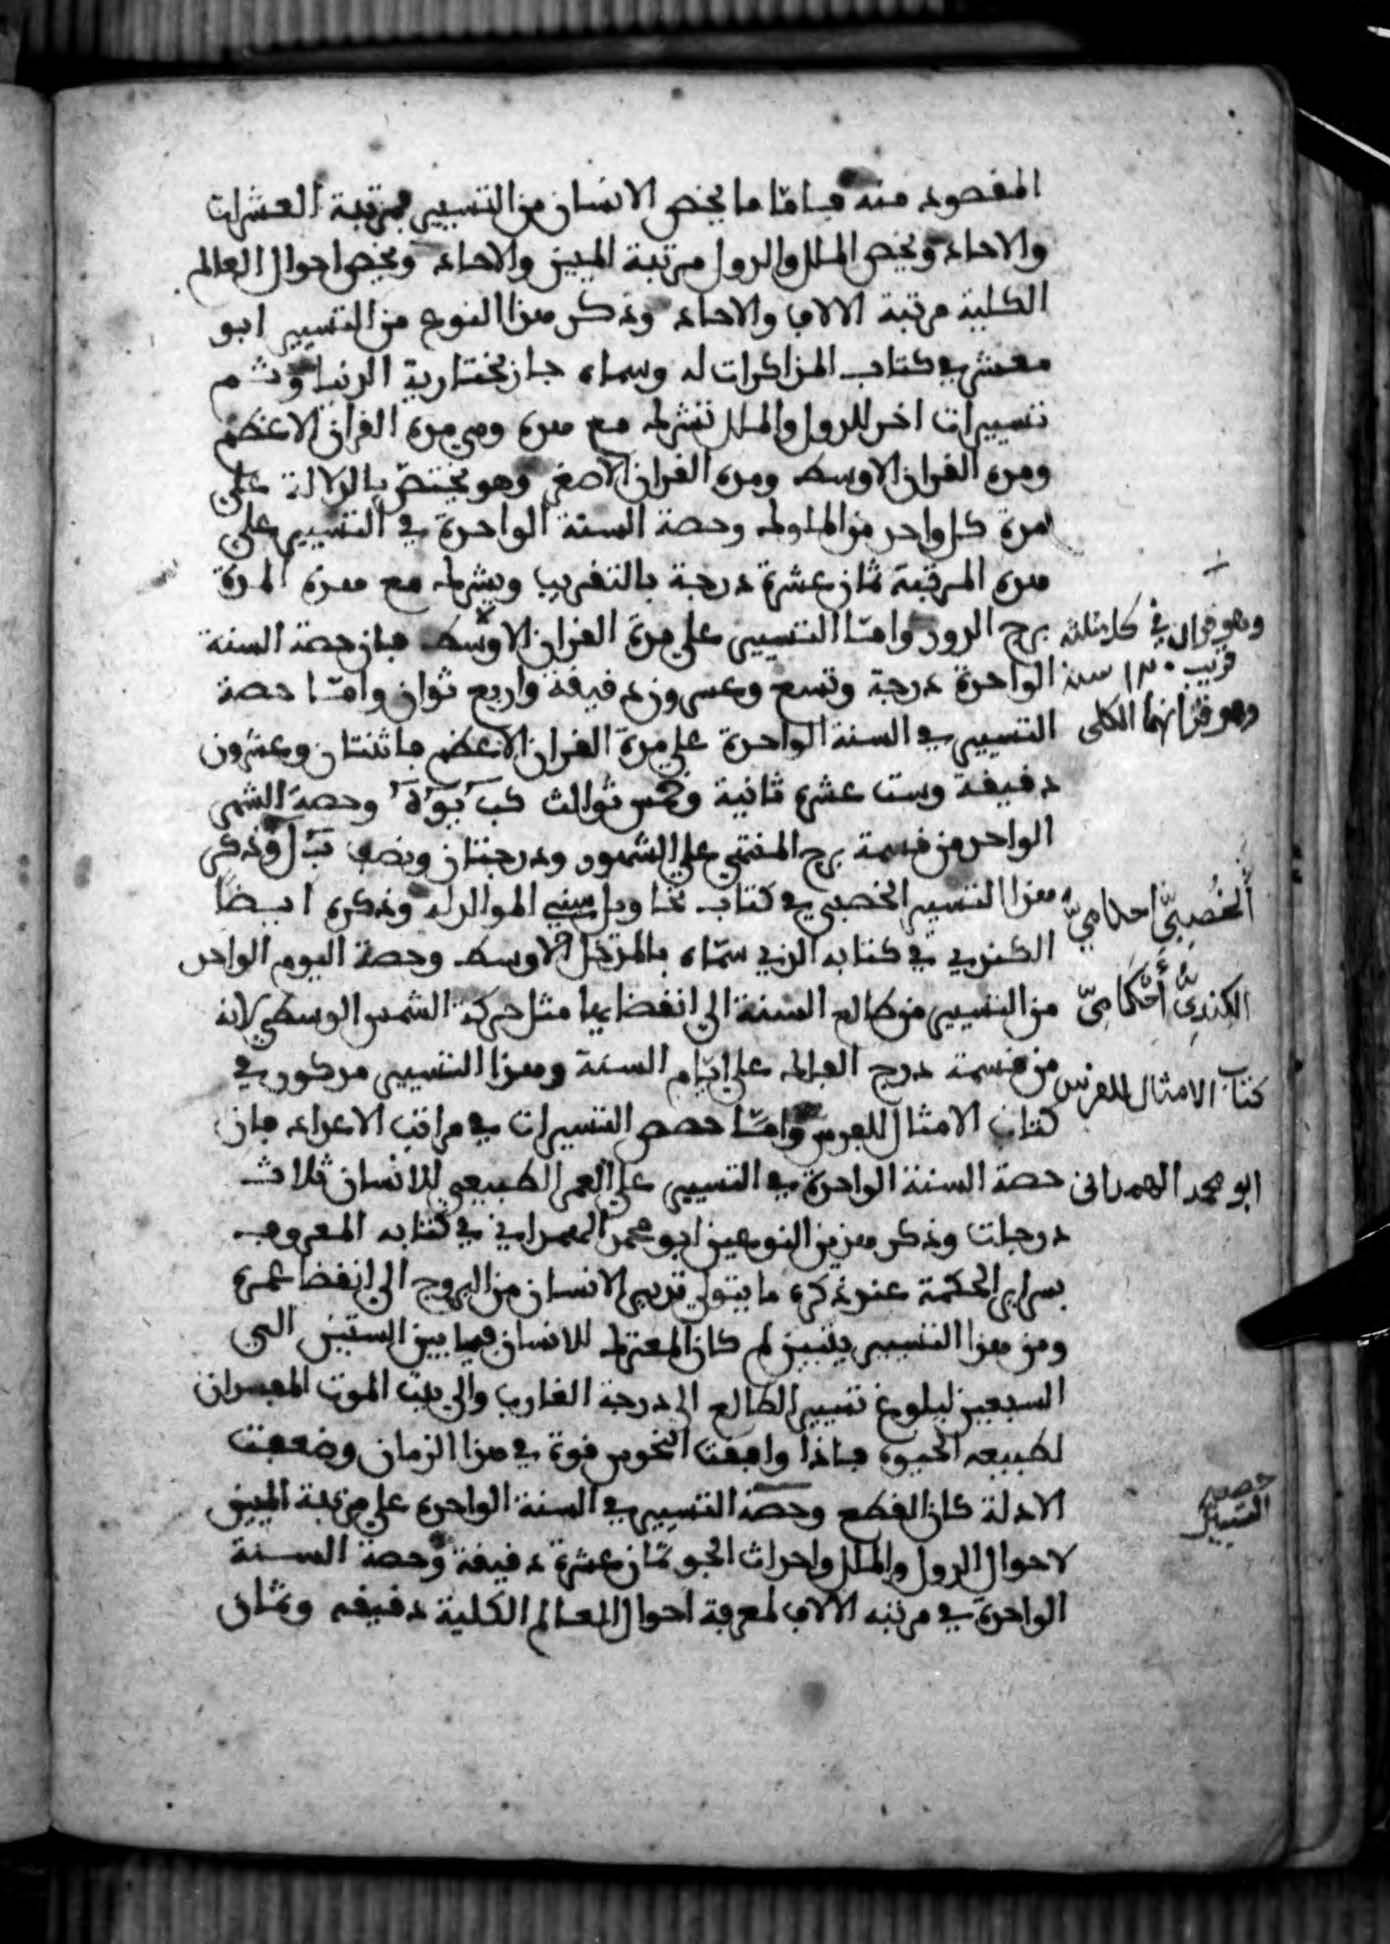 المقصود منه فاما ما يخص الانسان من التسيير فمرتبة العشرات
والاحاد ويخص الملل والدول مرتبة الميين والاحاد ويخص احوال العالم
الكلية مرتبة الالاف والاحاد وذكر هذا النوع من التسيير ابو
معشر في كتاب المذاكرات له وسماه جانبختارية الدنيا وثم
تسييرات اخر للدول والملل تشرك مع هذه وهي مدة القران الاعظم
ومدة القران الاوسط ومدة القران الاصغر وهو يختص بالدلالة على
مدة كل واحد من الملوك وحصة السنة الواحدة في التسيير على
هذه المرتبة ثمان عشرة درجة بالتقريب ويشرك مع هذه المدة
برج الدور واما التسيير على مدة القران الاوسط فان حصة السنة
الواحدة درجة وتسع وعشرون دقيقة واربع ثوان واما حصة
التسيير في السنة الواحدة على مدة القران الاعظم فاثنتان وعشرون
دقيقة وست عشرة ثانية وخمس ثوالث كب يو ه وحصة الشهر
الواحد من قسمة برج المنتهى على الشهور درجتان ونصف ب ل وذكر
هذا التسيير الخصيبي في كتاب تحاويل سني المواليد له وذكره ايضا
الكندي في كتابه الذي سماه بالمدخل الاوسط وحصة اليوم الواحد
من التسيير من طالع السنة الى انقضايها مثل حركة الشمس الوسطى لانه
من قسمة درج الفلك على ايام السنة وهذا التسيير مذكور في
كتاب الامثال للفرس واما حصص التسييرات في مراتب الاعداد فان
حصة السنة الواحدة في التسيير على العمر الطبيعي للانسان ثلاث
درجات وذكر هذين النوعين ابو محمد الهمداني في كتابه المعروف
بسراير الحكمة عند ذكره ما يتولى تدبير الانسان من البروج الى انقضا عمره
ومن هذا التسيير يتبين لم كان المعترك للانسان فيما بين الستين الى
السبعين لبلوغ تسيير الطالع الى درجة الغارب والى بيت الموت المفسدان
لطبيعه الحيوة فاذا وافقت النحوس قوة في هذا الزمان وضعفت
الادلة كان القطع وحصة التسيير في السنة الواحدة على مرتبة الميين
لاحوال الدول والملل واحداث الجو ثمان عشرة دقيقة وحصة السنة
الواحدة في مرتبه الالاف لمعرفة احوال العالم الكلية دقيقه وثمان
وهو قران في كل مثلثه
قريب ١٣٠ سنة
وهو قرانهما الكلى
الخصيبي احكامي
الكندي احكامي
كتاب الامثال للفرس
ابو محمد الهمداني
حصص
التسيير